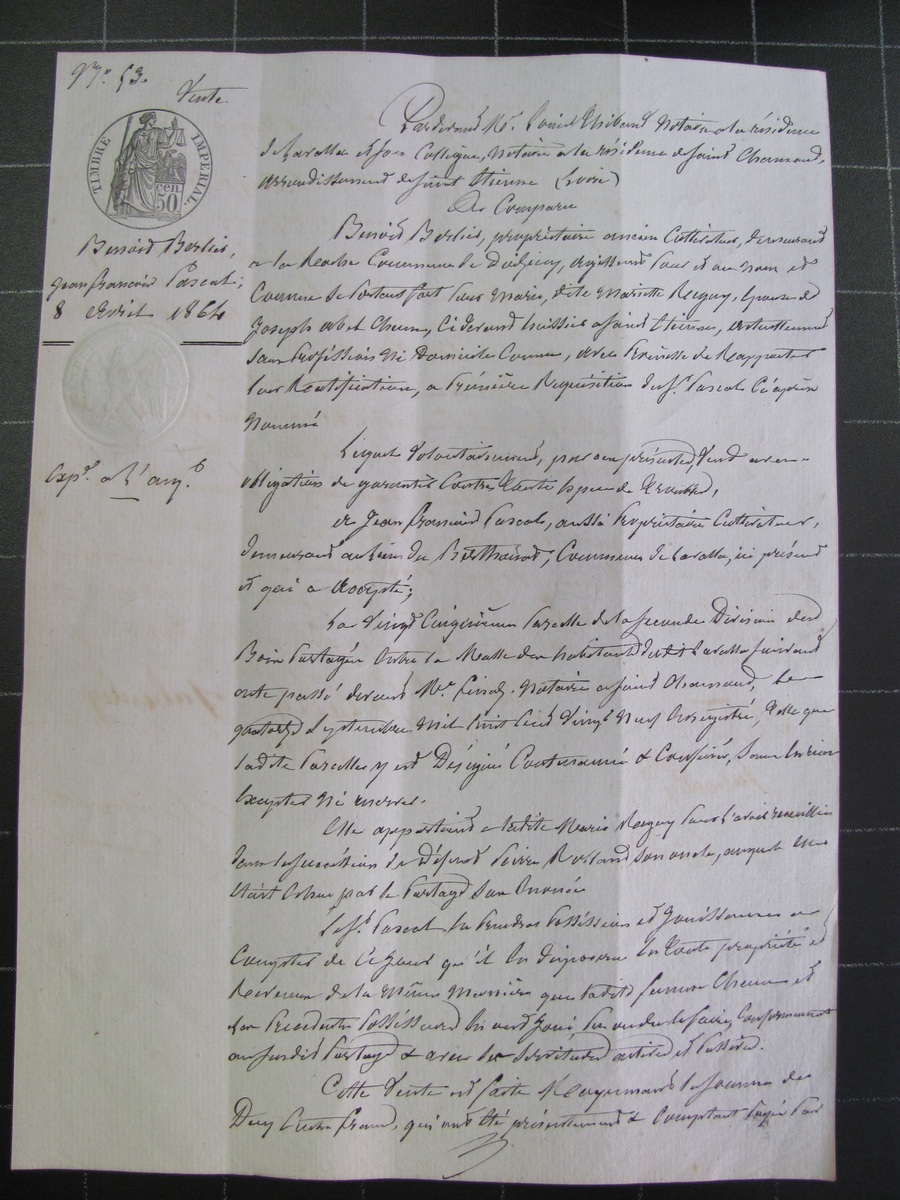 N.° 53.
Vente
TIMBRE IMPÉRIAL.
50 cen.
Benoit Berlier,
Jean François Pascal;
8 Avril 1864
exp. à l'acq.
Pardevant M.e Thibaud Notaire à la résidence
de Lavalla et son Collègue, Notaire à la résidence de Saint Chamond,
arrondissement de Saint Etienne (Loire)
A Comparu
Benoit Berlier, propriétaire ancien Cultivateur, demeurant
à la Commune de agissant pour et au nom et
Comme se portant fort pour Marie, dite Mariette épouse de
Joseph Ci devant huissier à Saint Etienne, actuellement
sans Proféssion ni Domicile Connu, avec Promesse de Rapporter
leur Ratification, à Première Réquisition du S.r Pascal Ci après
nommé
Lequel Volontairement, par ces présentes Vend avec
obligation de garantir Contre toute Espèce de Troubles,
à Jean François Pascal, aussi Propriétaire Cultivateur,
demeurant au lieu du Commune de Lavalla, ici présent
et qui a Accepté;
La Vingt Cinquième Parcelle de la Seconde Division des
Bois Partagés Entre la Masse des habitants de Lavalla suivant
acte passé devant M.e Notaire à Saint Chamond, Le
quatorze Septembre Mil huit Cent Vingt Neuf Enregistré, telle que
ladite Parcelle y est Désignée & Confinée, Sans En rien
Excepter Ni réserver.
Elle appartient à ladite Marie pour l'avoir recueillie
dans la Succéssion de Défunt Pierre Rolland son oncle, auquel Elle
était échue par le Partage Sus Enoncé
Le S.r Pascal En Prendra Posséssion et Jouissance à
Compter de Ce Jour qu'il En disposera En toute propriété et
Revenus de la Même Manière que ladite femme et
Les Précédents Posséssseurs En ont Joui Pu ou dû le faire, Conformement
au susdit Partage & avec les Servitudes actives et Passives.
Cette Vente est faite Moyennant la Somme de
Deux Cents francs, qui ont été présentement & Comptant Payés Par